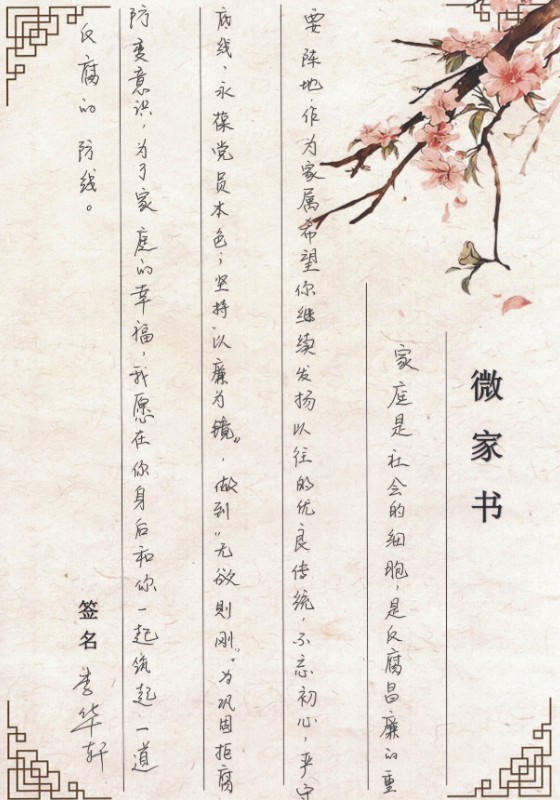 微家书
家庭是社会的细胞，是反腐昌廉的重
要阵地，作为家属希望你继续发扬以往的优良传统，不忘初心，严守
底线，永葆党员本色，坚持“以廉为镜”，做到“无欲则刚”。为巩固拒腐
防变意识，为了家庭的幸福，我愿在你身后和你一起筑起一道
反腐的防线。
签名 李华轩